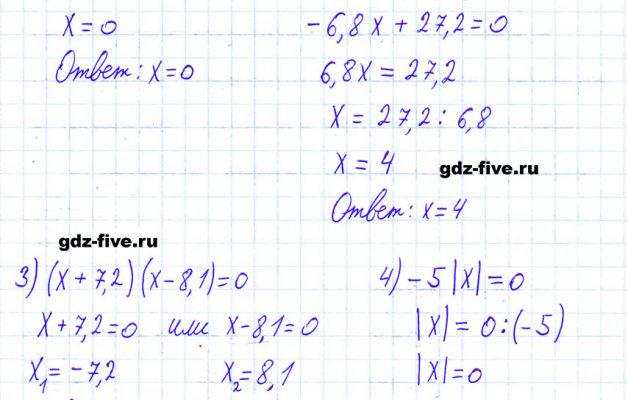 x = 0
Ответ: x = 0
-6,8x + 27,2 = 0
6,8x = 27,2
x = 27,2 : 6,8
x = 4
gdz-five.ru
Ответ: x = 4
gdz-five.ru
3) (x + 7,2)(x - 8,1) = 0
x + 7,2 = 0 или x - 8,1 = 0
x₁ = -7,2 x₂ = 8,1
4) -5|x| = 0
|x| = 0 : (-5)
|x| = 0